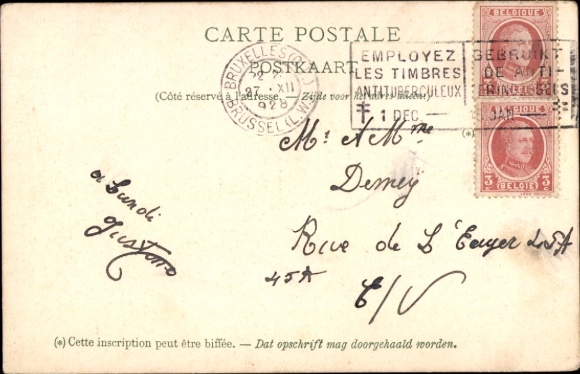 CARTE POSTALE
POSTKAART
(Côté réservé à l'adresse. — Zijde voor het adres alleen.)
BRUXELLES
27 · XII
1928
BRUSSEL
EMPLOYEZ
LES TIMBRES
ANTITUBERCULEUX
1 DEC
GEBRUIKT
DE ANTI-
JAN
BELGIQUE
3 BELGIË 3
(*)
Mr & Mme
Demey
Rue de 45A
45A
E/V
a Lundi
Gustave
(*) Cette inscription peut être biffée. — Dat opschrift mag doorgehaald worden.